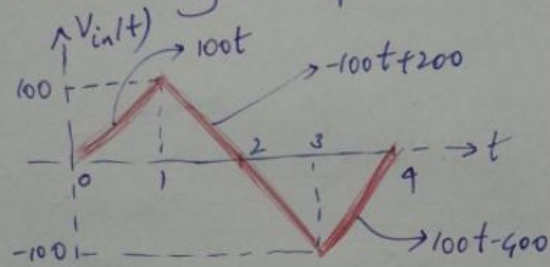 Vin(t)
100t
-100t+200
100
0
1
2
3
4
t
-100
100t-400